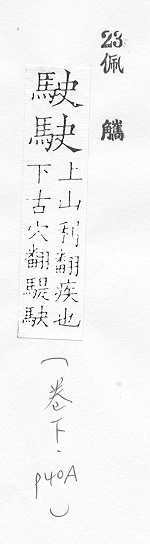 23佩觿
駛駃
上山利翻疾也
下古穴翻騠駃
(卷下.p40A)